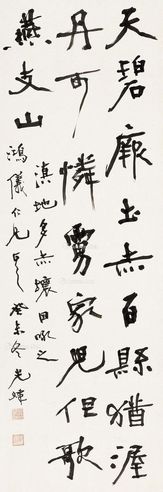 天碧廠土赤百縣猶渥
丹可憐霣家兒但歌
燕支山
滇地多赤壤因詠之
鴻儀仁兄正之 癸未冬 光煒